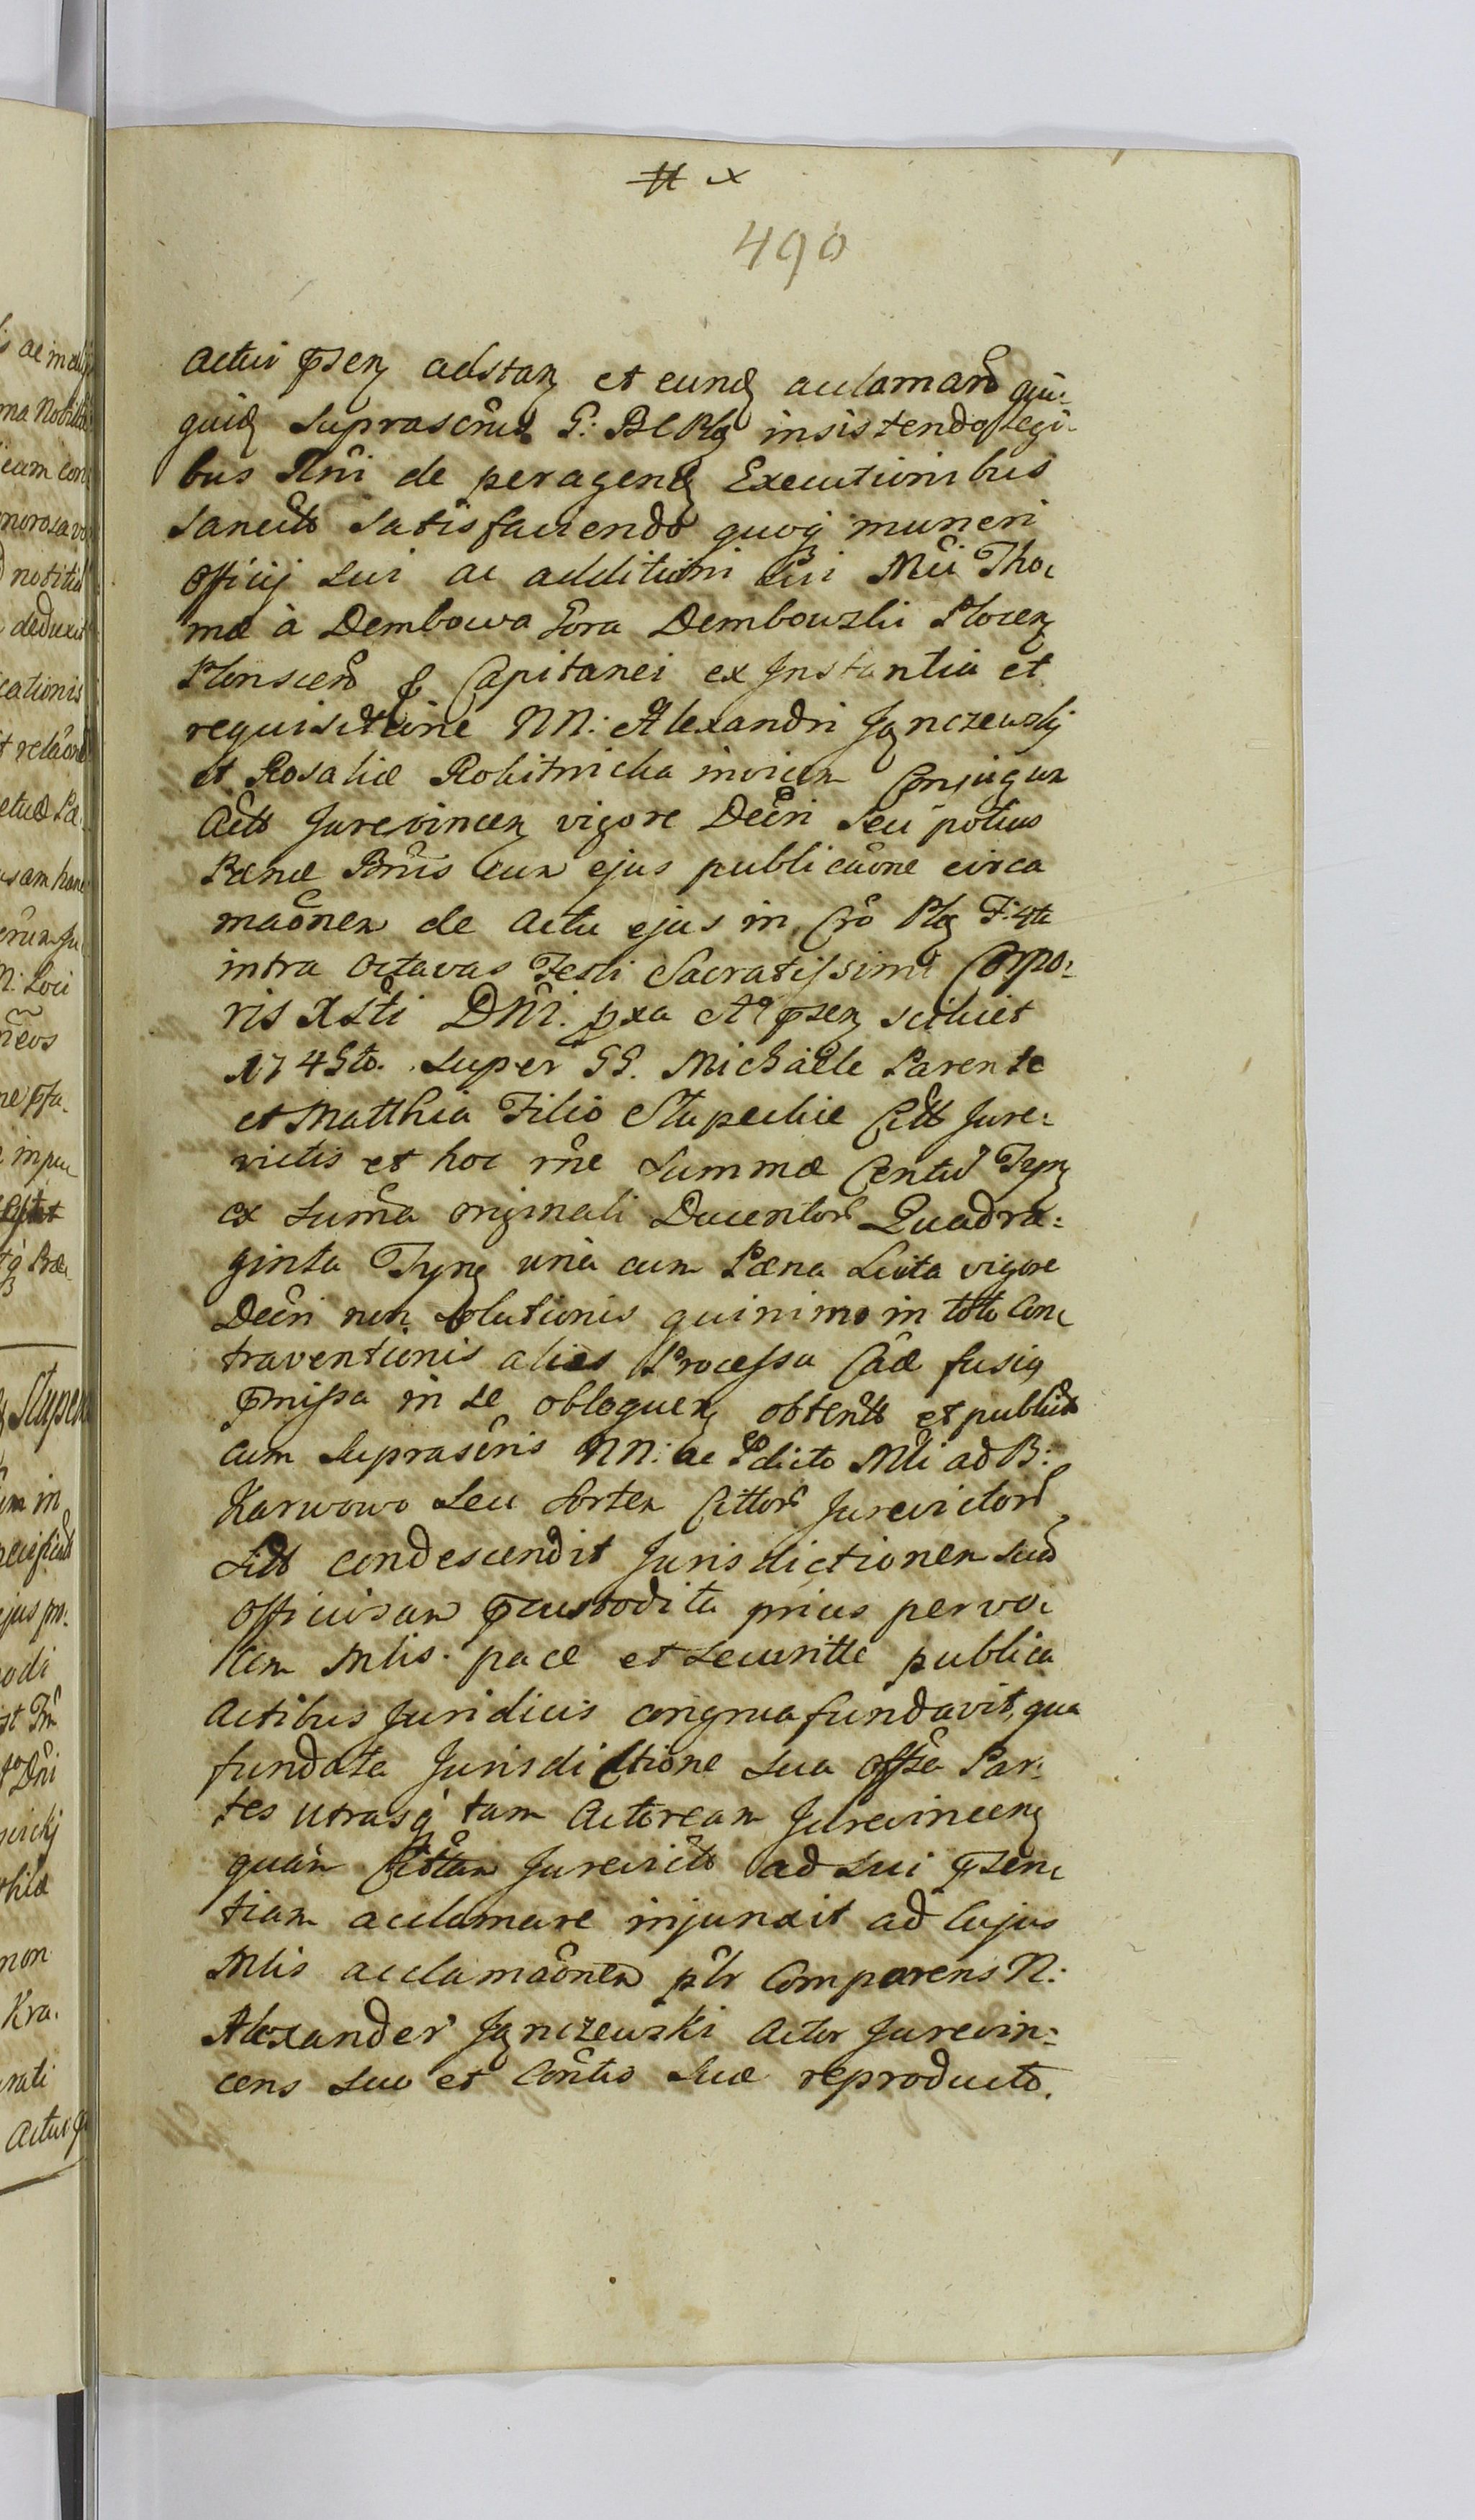 # x
490
actui psen adstan et eund acclamand qui-
quid suprascrius G: BCPlg insistendo Legi-
bus Rni de peragend Executionibus
sancits satisfaciendo quoq muneri
officij sui ac additioni sui Mci Tho-
mæ à Dembowa Gora Dembowski Plocen
Plonscen & Capitanei ex Instantia et
requisitione NN: Alexandri Jgnczewskj
et Rosaliæ Rokitnicka invicem Conjugum
Acts Jurevincen vigore Decri seu potius
Pænæ Bnis cum ejus publicaône circa
maônem de actu ejus in Cro Plg F: 4ta
intra octavas Festi Sacratissimi Corpo-
ris Xsti Dni. pxa Ao psen scilicet
1745to. super GG. Michaele Parente
et Matthia Filio Stupeckie Citts Jure-
victis et hoc rne summæ Centū Tyn
ex suma originali Ducentor Quadra:
ginta Tyng unà cum Pæna Luita vigore
Decri non solutionis quinimo in toto Con-
traventionis alias Processu Caê fusiq
pmissa in se obloquen obtents et publicts
cum suprascris NN: ac Pdicto Mli ad B:
Karwowo seu sortem Cittor Jurevictor
Lts condescendit Jurisdictionem suā
officiosam pcustodita prius per vo-
cem Mlis. pace et securitte publica
actibus Juridicis congrua fundavit, qua
fundata Jurisdictione sua offsa Par-
tes utrasq tam Actoream Jurevincen
quàm Cittam Jurevicts ad sui psen-
tiam acclamare injunxit ad Cujus
Mlis acclamaônem plr Comparens N:
Alexander Jgnczewski Actor Jurevin:
cens suo et Contis suæ reproducto.